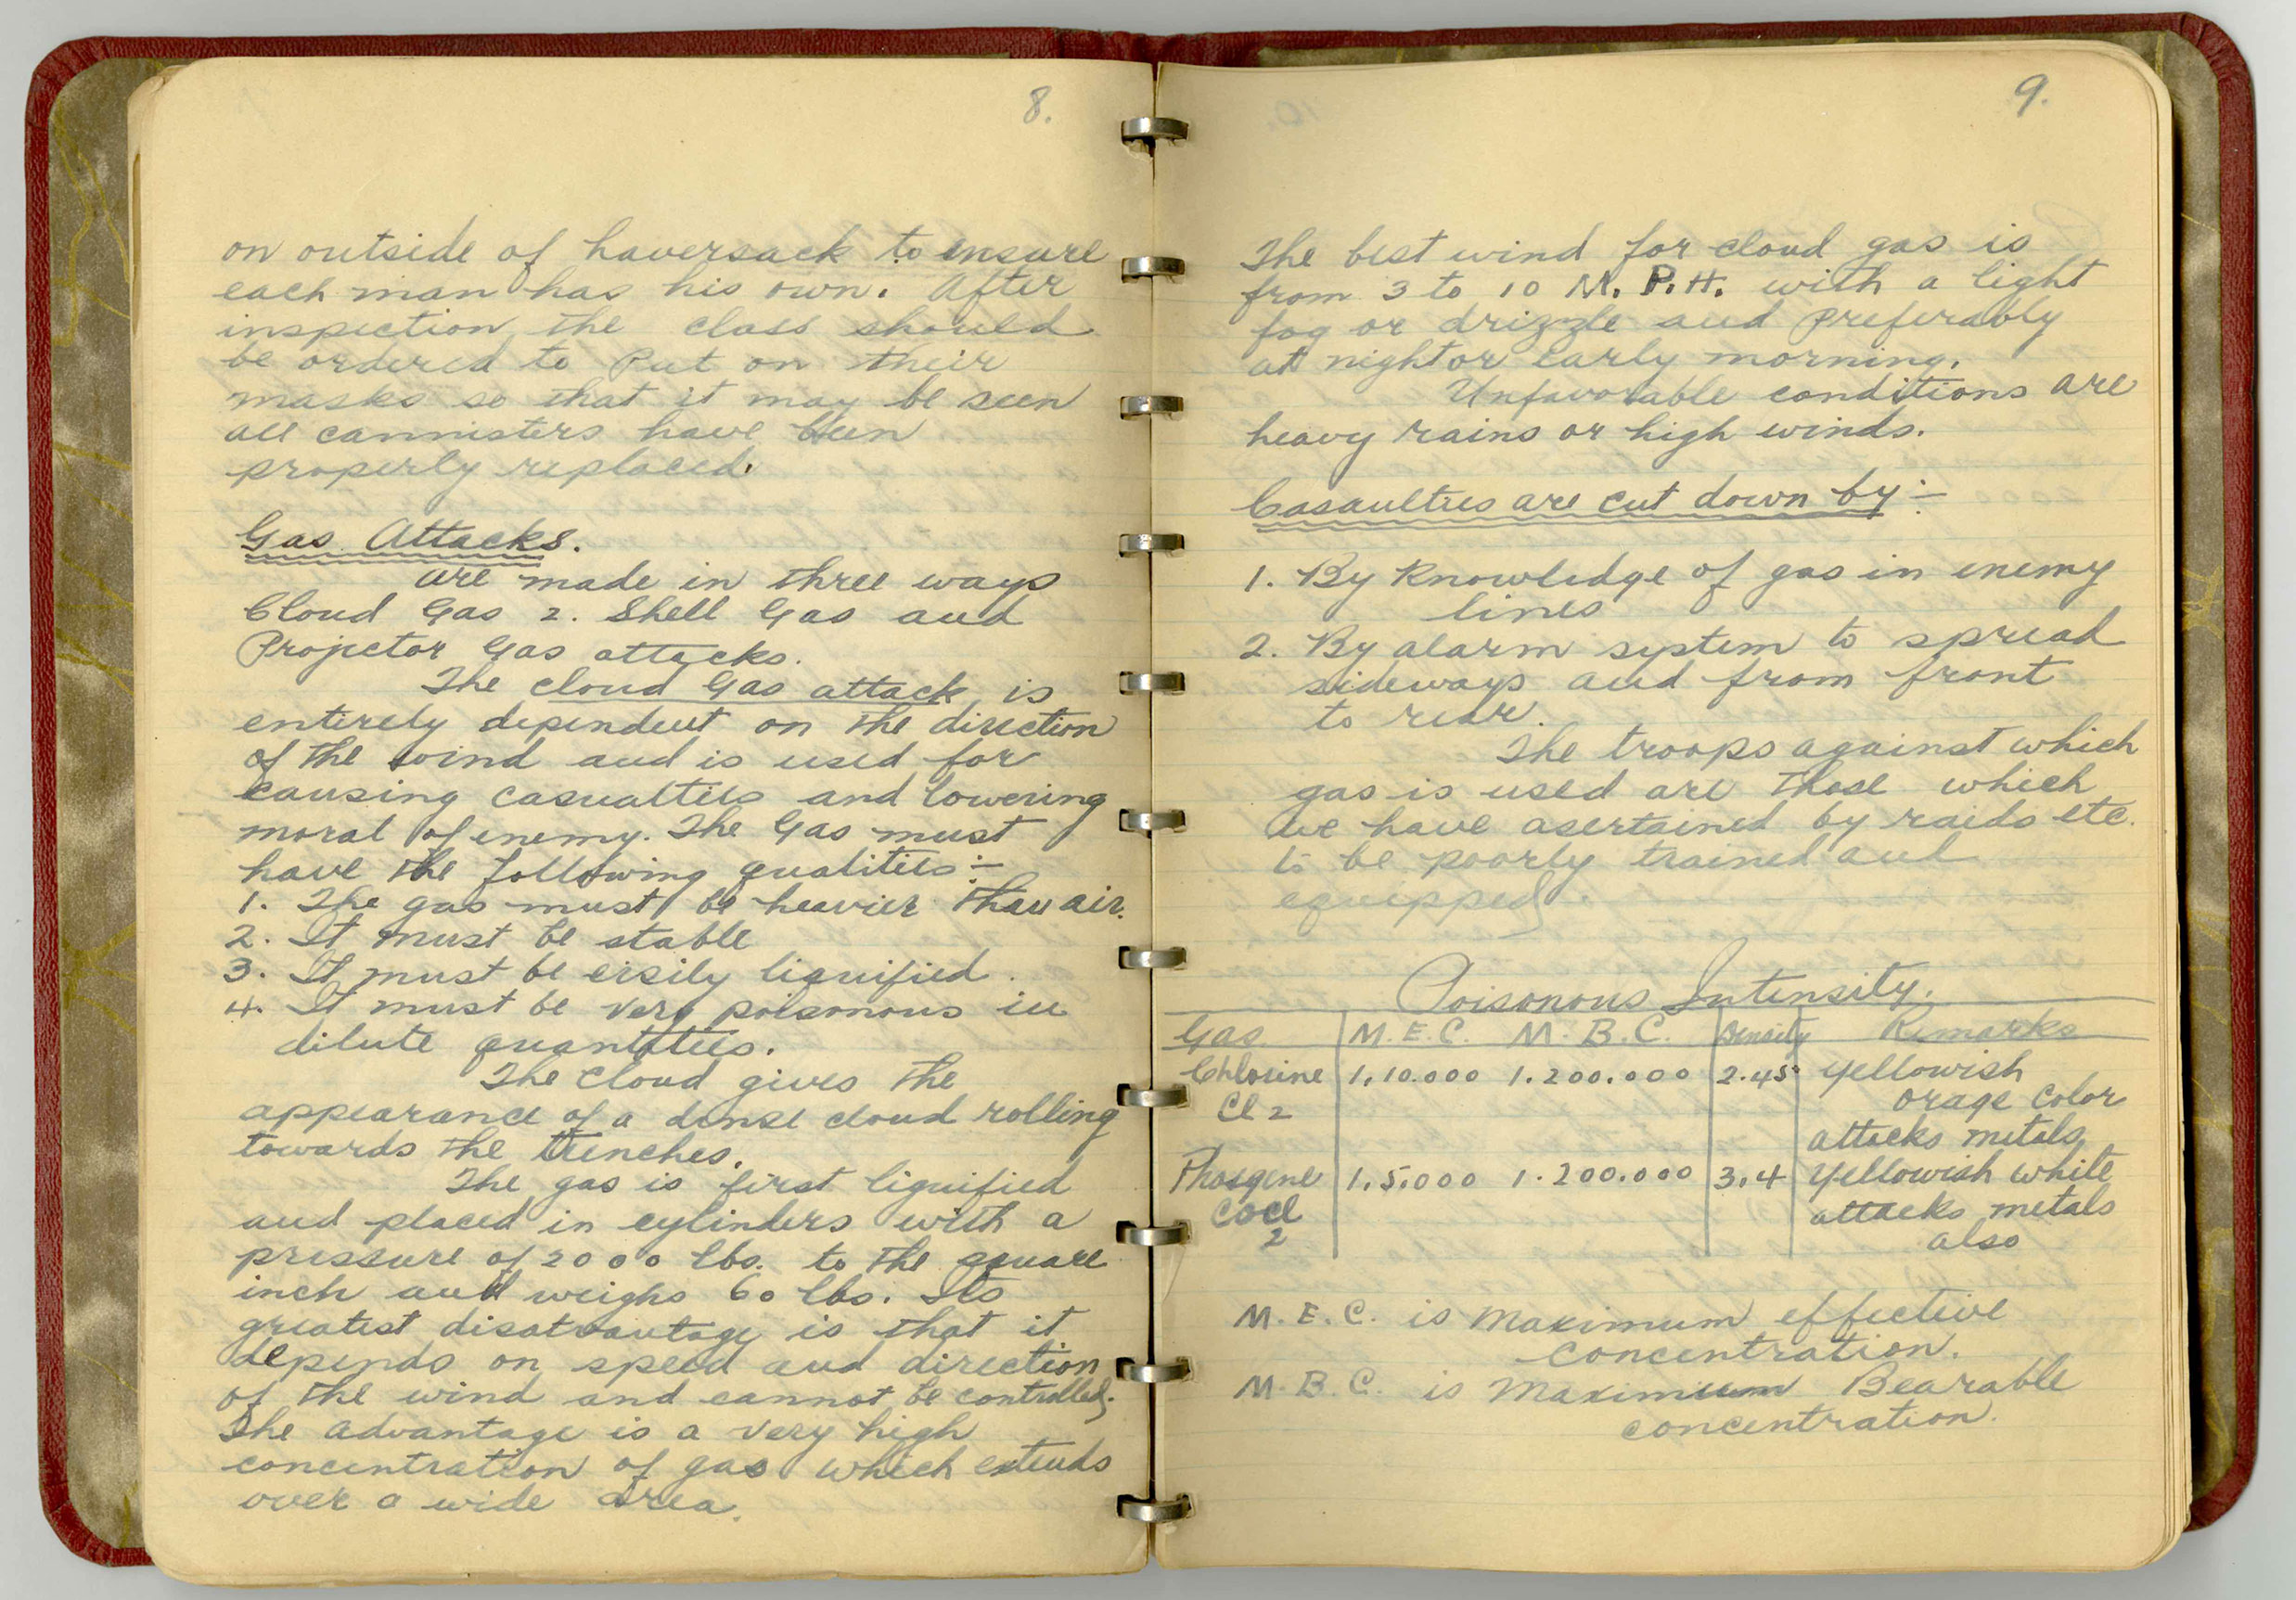 8.
on outside of haversack to ensure
each man has his own. After
inspection the class should
be ordered to Put on their
masks so that it may be seen
all cannisters have been
properly replaced.
Gas Attacks.
are made in three ways
Cloud Gas 2. Shell Gas and
Projector Gas attacks.
The cloud Gas attack is
entirely dependent on the direction
of the wind and is used for
causing casualties and lowering
moral of enemy. The Gas must
have the following qualities:-
1. The gas must be heavier than air.
2. It must be stable
3. It must be eisily liquified.
4. It must be very poisonous in
dilute quantities.
The cloud gives the
appearance of a dense cloud rolling
towards the trenches.
The gas is first liquified
and placed in cylinders with a
pressure of 2000 lbs. to the square
inch and weighs 60 lbs. Its
greatest disatvantage is that it
depends on speed and direction
of the wind and cannot be controlled.
The advantage is a very high
concentration of gas which extends
over a wide area.
9.
The best wind for cloud gas is
from 3 to 10 M.P.H. with a light
fog or drizzle and preferably
at night or early morning.
Unfavorable conditions are
heavy rains or high winds.
Casaulties are cut down by:-
1. By Knowledge of gas in enemy
lines
2. By alarm system to spread
sideways and from front
to rear.
The troops against which
gas is used are those which
we have asertained by raids etc.
to be poorly trained and
equipped.
Poisonous Intensity.
Gas M.E.C. M.B.C. Density Remarks
Chlorine 1,10.000 1.200.000 2.45 yellowish
Cl2 orage color
attacks metals
Phosgene 1,5.000 1.200.000 3.4 yellowish white
COCl attacks metals
2 also
M.E.C. is Maximum effective
concentration.
M.B.C. is Maximum Bearable
concentration.